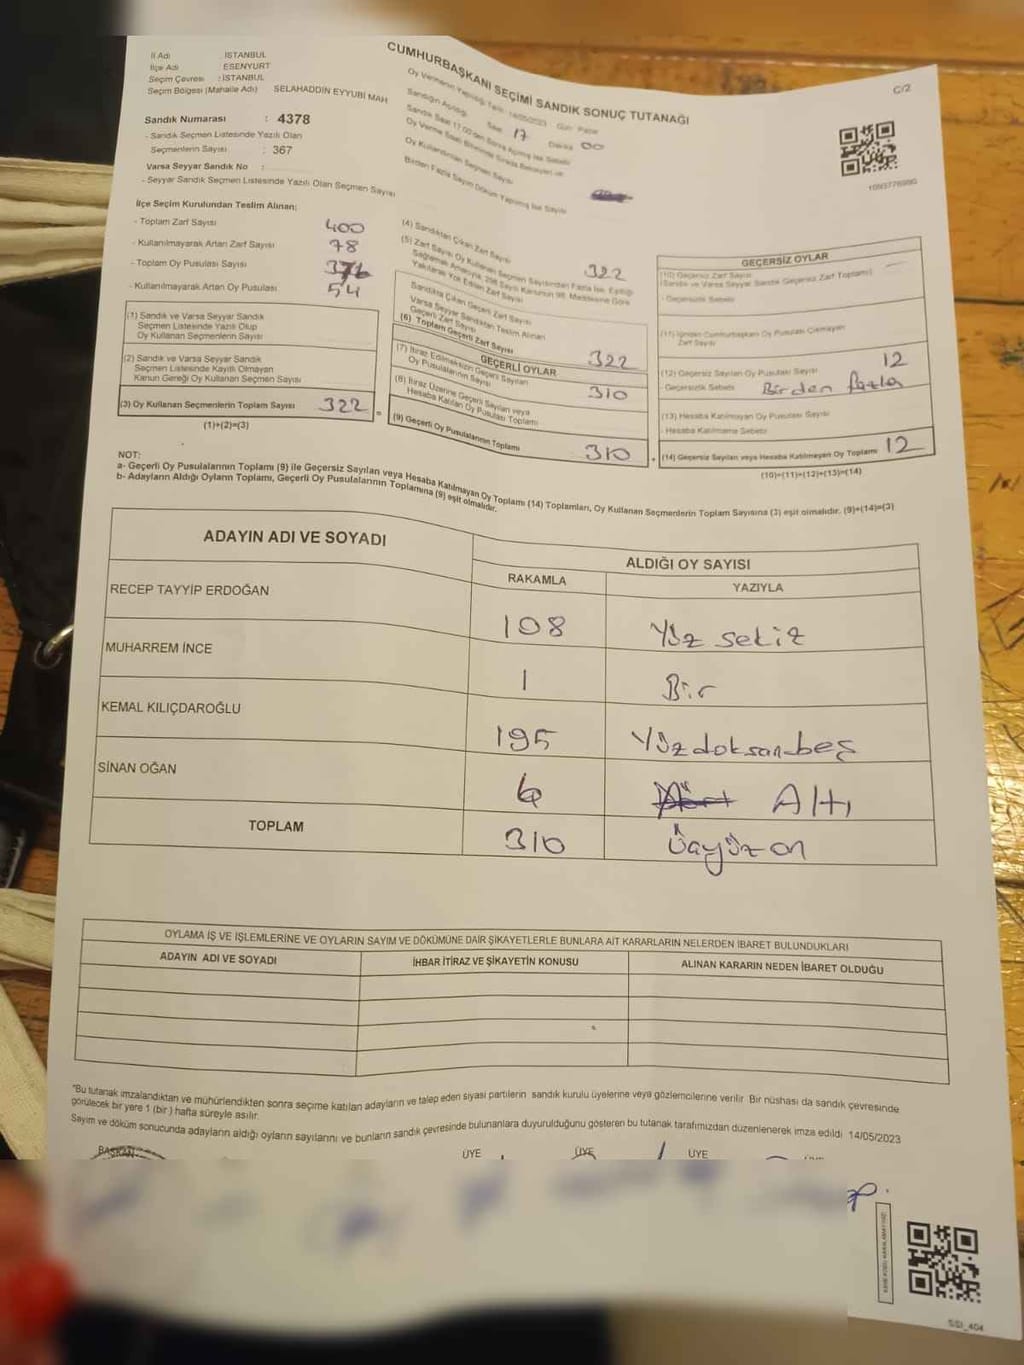 CUMHURBAŞKANI SEÇİMİ SANDIK SONUÇ TUTANAĞI
C/2
İl Adı : İSTANBUL
İlçe Adı : ESENYURT
Seçim Çevresi : İSTANBUL
Seçim Bölgesi (Mahalle Adı) SELAHADDİN EYYUBİ MAH
Sandık Numarası : 4378
- Sandık Seçmen Listesinde Yazılı Olan
Seçmenlerin Sayısı : 367
Varsa Seyyar Sandık No :
- Seyyar Sandık Seçmen Listesinde Yazılı Olan Seçmen Sayısı
Oy Vermenin Yapıldığı Tarih 14/05/2023 Gün: Pazar
Sandığın Açıldığı Saat 17 Dakika 00
Oy Kullandırılan Seçmen Sayısı
Birden Fazla Sayım Döküm Yapılmış İse Sayısı
İlçe Seçim Kurulundan Teslim Alınan:
- Toplam Zarf Sayısı 400
- Kullanılmayarak Artan Zarf Sayısı 78
- Toplam Oy Pusulası Sayısı 376
- Kullanılmayarak Artan Oy Pusulası 54
(1) Sandık ve Varsa Seyyar Sandık
Seçmen Listesinde Yazılı Olup
Oy Kullanan Seçmenlerin Sayısı
(2) Sandık ve Varsa Seyyar Sandık
Seçmen Listesinde Kayıtlı Olmayan
Kanun Gereği Oy Kullanan Seçmen Sayısı
(3) Oy Kullanan Seçmenlerin Toplam Sayısı 322
(1)+(2)=(3)
(4) Sandıktan Çıkan Zarf Sayısı 322
(5) Zarf Sayısı Oy Kullanan Seçmen Sayısından Fazla İse, Eşitliği
Sağlamak Amacıyla, 298 Sayılı Kanunun 98. Maddesine Göre
Yakılarak Yok Edilen Zarf Sayısı
Sandıkta Çıkan Geçerli Zarf Sayısı
Varsa Seyyar Sandıktan Teslim Alınan
Geçerli Zarf Sayısı
(6) Toplam Geçerli Zarf Sayısı 322
GEÇERLİ OYLAR
(7) İtiraz Edilmeksizin Geçerli Sayılan
Oy Pusulalarının Sayısı 310
(8) İtiraz Üzerine Geçerli Sayılan veya
Hesaba Katılan Oy Pusulası Toplamı
(9) Geçerli Oy Pusulalarının Toplamı 310
GEÇERSİZ OYLAR
(10) Geçersiz Zarf Sayısı
(Sandık ve Varsa Seyyar Sandık Geçersiz Zarf Toplamı)
- Geçersizlik Sebebi
(11) İçinden Cumhurbaşkanı Oy Pusulası Çıkmayan
Zarf Sayısı
(12) Geçersiz Sayılan Oy Pusulası Sayısı 12
- Geçersizlik Sebebi Birden fazla
(13) Hesaba Katılmayan Oy Pusulası Sayısı
- Hesaba Katılmama Sebebi
(14) Geçersiz Sayılan veya Hesaba Katılmayan Oy Toplamı 12
(10)+(11)+(12)+(13)=(14)
NOT:
a- Geçerli Oy Pusulalarının Toplamı (9) ile Geçersiz Sayılan veya Hesaba Katılmayan Oy Toplamı (14) Toplamları, Oy Kullanan Seçmenlerin Toplam Sayısına (3) eşit olmalıdır. (9)+(14)=(3)
b- Adayların Aldığı Oyların Toplamı, Geçerli Oy Pusulalarının Toplamına (9) eşit olmalıdır.
ADAYIN ADI VE SOYADI
ALDIĞI OY SAYISI
RAKAMLA YAZIYLA
RECEP TAYYİP ERDOĞAN 108 Yüz sekiz
MUHARREM İNCE 1 Bir
KEMAL KILIÇDAROĞLU 195 Yüzdoksanbeş
SİNAN OĞAN 6 Altı
TOPLAM 310 Üçyüz on
OYLAMA İŞ VE İŞLEMLERİNE VE OYLARIN SAYIM VE DÖKÜMÜNE DAİR ŞİKAYETLERLE BUNLARA AİT KARARLARIN NELERDEN İBARET BULUNDUKLARI
ADAYIN ADI VE SOYADI İHBAR İTİRAZ VE ŞİKAYETİN KONUSU ALINAN KARARIN NEDEN İBARET OLDUĞU
"Bu tutanak imzalandıktan ve mühürlendikten sonra seçime katılan adayların ve talep eden siyasi partilerin sandık kurulu üyelerine veya gözlemcilerine verilir. Bir nüshası da sandık çevresinde
görülecek bir yere 1 (bir) hafta süreyle asılır.
Sayım ve döküm sonucunda adayların aldığı oyların sayılarını ve bunların sandık çevresinde bulunanlara duyurulduğunu gösteren bu tutanak tarafımızdan düzenlenerek imza edildi 14/05/2023
BAŞKAN ÜYE ÜYE ÜYE
SSİ_404